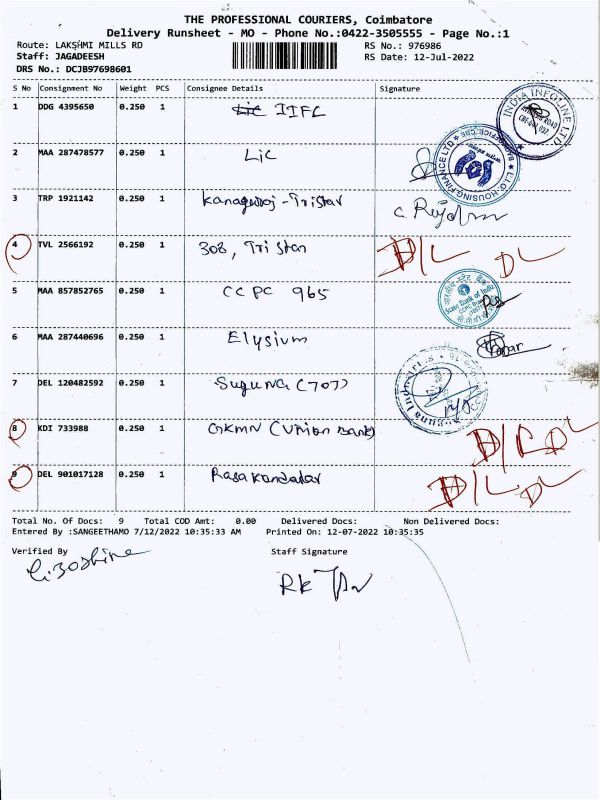 THE PROFESSIONAL COURIERS, Coimbatore
Delivery Runsheet - MO - Phone No.:0422-3505555 - Page No.:1
Route: LAKSHMI MILLS RD RS No.: 976986
Staff: JAGADEESH RS Date: 12-Jul-2022
DRS No.: DCJB97698601
S No Consignment No Weight PCS Consignee Details Signature
1 DDG 4395650 0.250 1 IIFL
INDIA INFOLINE LTD
2 MAA 287478577 0.250 1 LIC
L.I.C. HOUSING FINANCE LTD
3 TRP 1921142 0.250 1 Kanagaraj - Tristar
4 TVL 2566192 0.250 1 308, Tri Star D/L DL
5 MAA 857852765 0.250 1 CCPC 965
State Bank of India
6 MAA 287440696 0.250 1 Elysium
7 DEL 120482592 0.250 1 Suguna (707)
8 KDI 733988 0.250 1 GKMN (Union Bank) D/L DL
9 DEL 901017128 0.250 1 D/L DL
Total No. Of Docs: 9 Total COD Amt: 0.00 Delivered Docs: Non Delivered Docs:
Entered By :SANGEETHAMO 7/12/2022 10:35:33 AM Printed On: 12-07-2022 10:35:35
Verified By Staff Signature